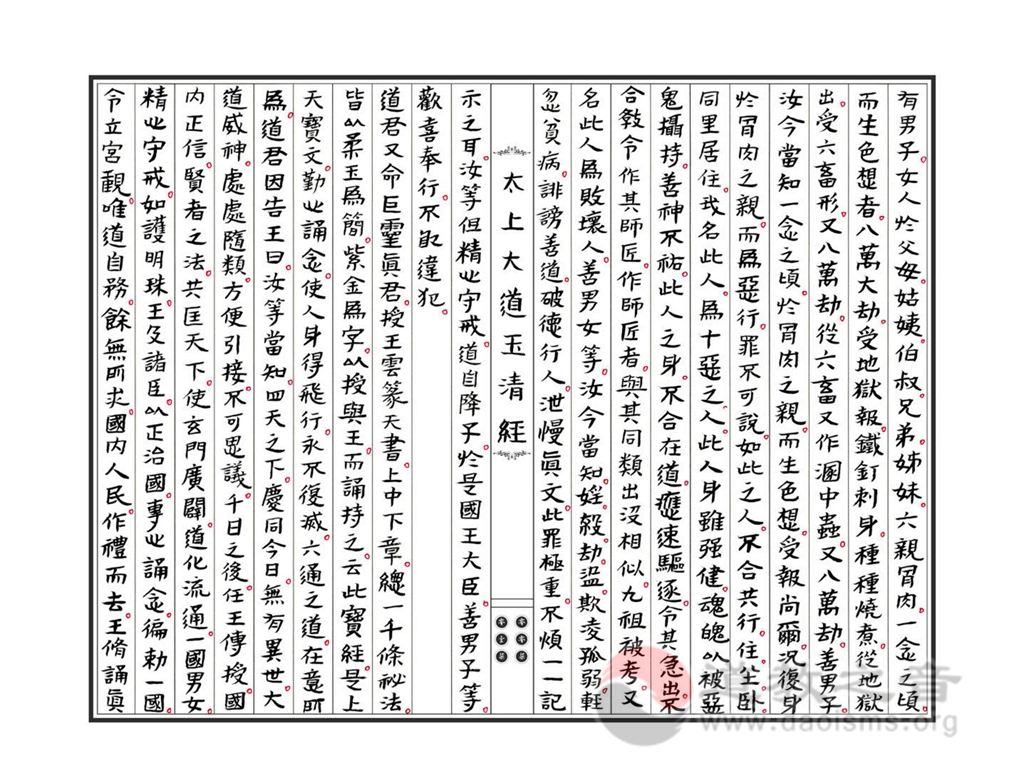 有男子女人於父母姑姨伯叔兄弟姊妹六親骨肉一念之頃
而生色想者八萬大劫受地獄報鐵釘刺身種種燒煮從地獄
出受六畜形又八萬劫從六畜又作溷中蟲又八萬劫善男子
汝今當知一念之頃於骨肉之親而生色想受報尚爾況復身
於骨肉之親而為惡行罪不可說如此之人不合共行住坐卧
同里居住我名此人為十惡之人此人身雖强健魂魄以被惡
鬼攝持善神不祐此人之身不合在道應速驅逐令其急出不
合教令作其師匠作師匠者與其同類出沒相似九祖被考又
名此人為敗壞人善男女等汝今當知婬殺劫盜欺凌孤弱輕
忽貧病誹謗善道破德行人泄慢真文此罪極重不煩一一記
太上大道玉清經
示之耳汝等但精心守戒道自降子於是國王大臣善男子等
歡喜奉行不敢違犯
道君又命巨靈真君授王雲篆天書上中下章總一千條秘法
皆以柔玉為簡紫金為字以授與王而誦持之云此寶經是上
天寶文勤心誦念使人身得飛行永不復滅六通之道在意所
為道君因告王曰汝等當知四天之下慶同今日無有異世大
道威神處處隨類方便引接不可思議千日之後任王傳授國
内正信賢者之法共匡天下使玄門廣闢道化流通一國男女
精心守戒如護明珠王及諸臣以正治國專心誦念徧勅一國
令立宮觀唯道自務餘無所求國内人民作禮而去王脩誦真
道教之音
www.daoisms.org